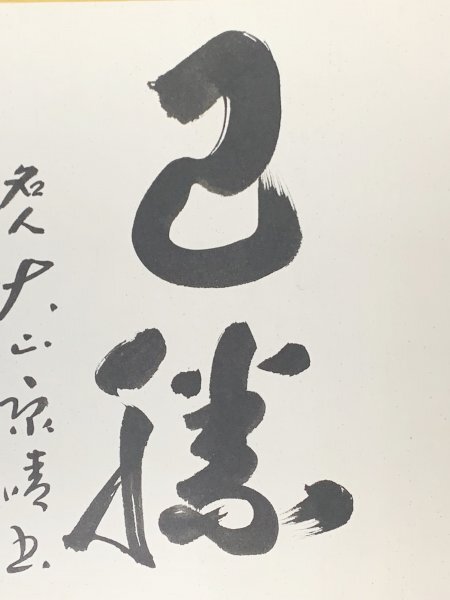 己勝
名人 大山康晴 书